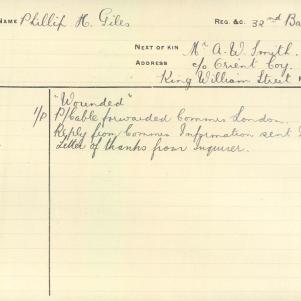 NAME Phillip H. Giles REG. &C. 32nd Ba
NEXT OF KIN Mr A. W. Smith.
ADDRESS c/o Orient Coy.
King William Street
"Wounded"
1/P P/Cable forwarded Commrs London.
Reply from Commrs Information sent
Letter of thanks from inquirer.